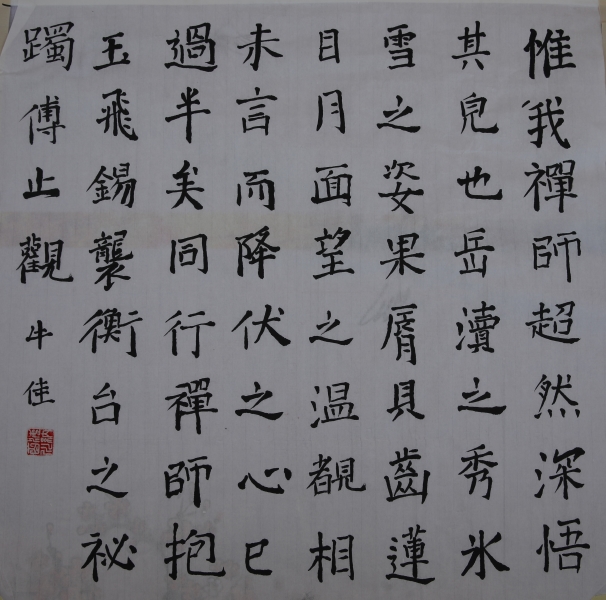 惟我禪師超然深悟
其皃也岳瀆之秀氷
雪之姿果脣貝齒蓮
目月面望之温覩相
未言而降伏之心已
過半矣同行禪師抱
玉飛錫襲衡台之祕
躅傅止觀 牛佳